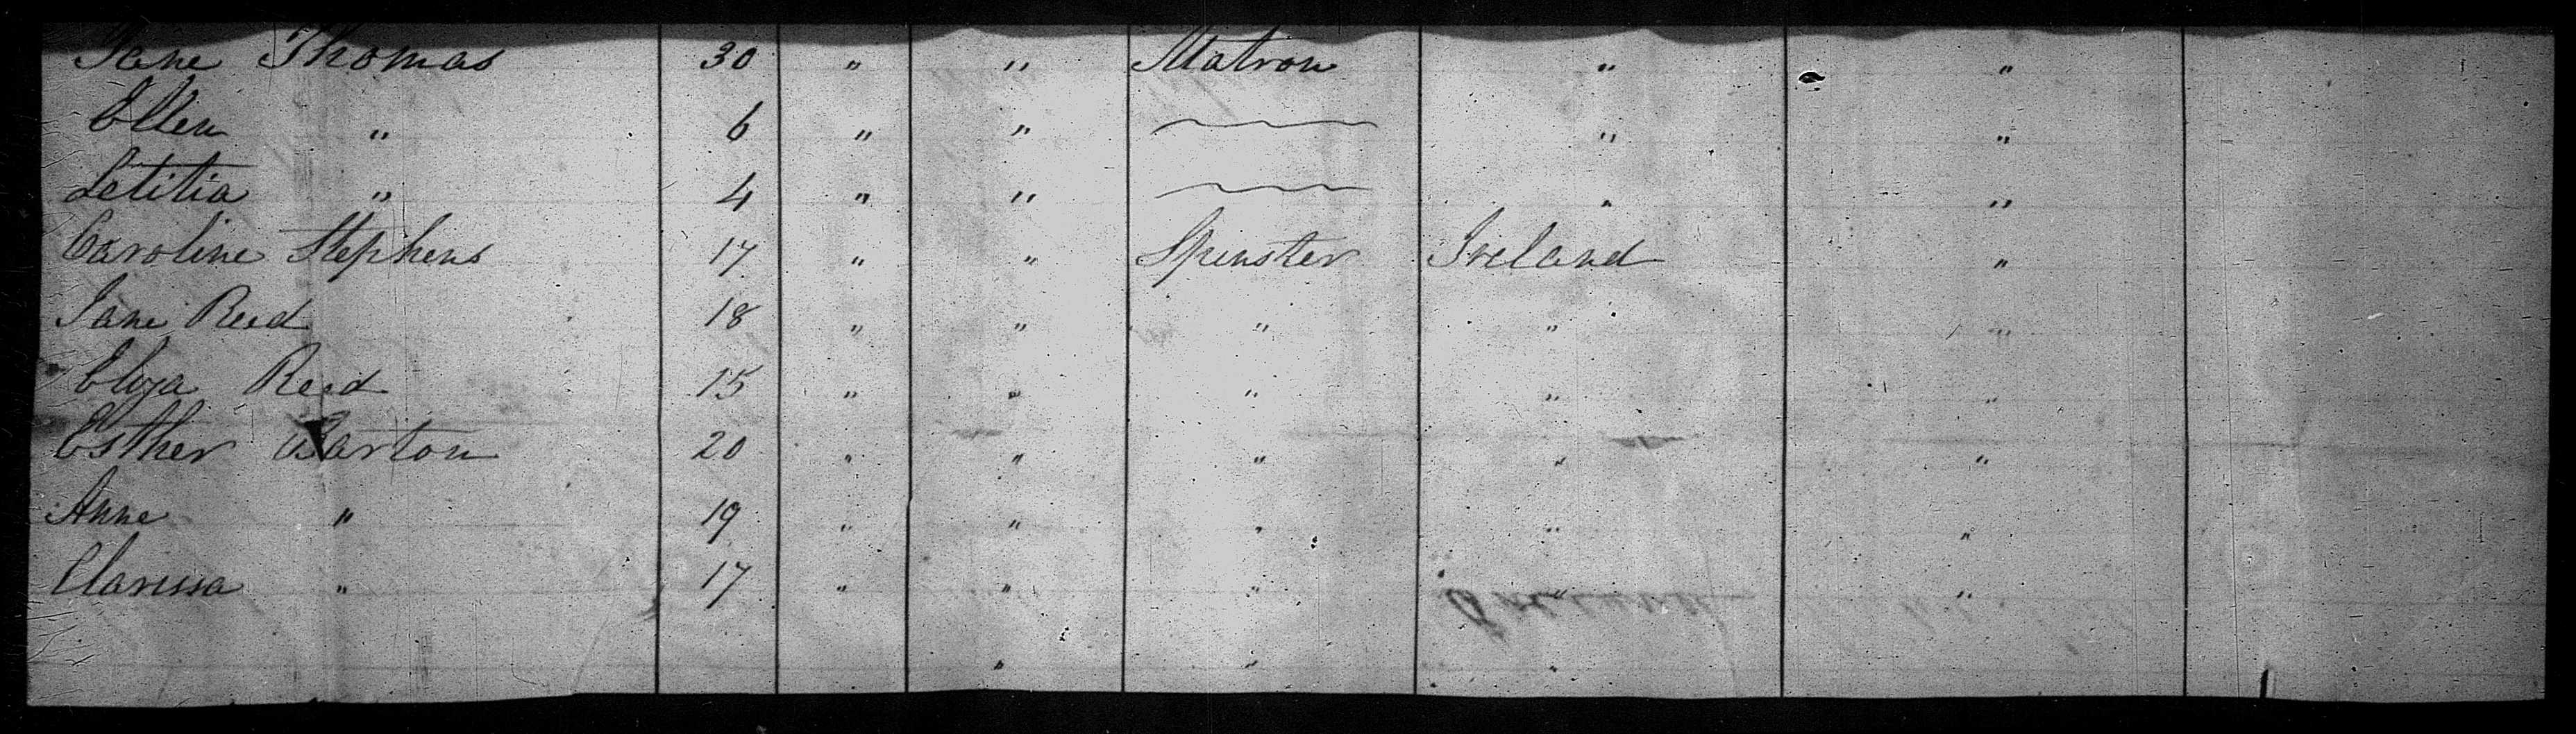 Jane Thomas 30 " " Matron " "
Ellen " 6 " " " "
Letitia " 4 " " " "
Caroline Stephens 17 " " Spinster Ireland "
Jane Reed 18 " " " " "
Eliza Reed 15 " " " " "
Esther Barton 20 " " " " "
Anne " 19 " " " " "
Clarissa " 17 " " " " "
" " "